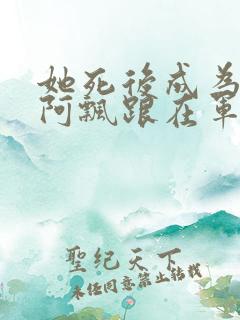 她死後成為
阿飄跟在軍
聖紀天下
未經同意禁止轉載